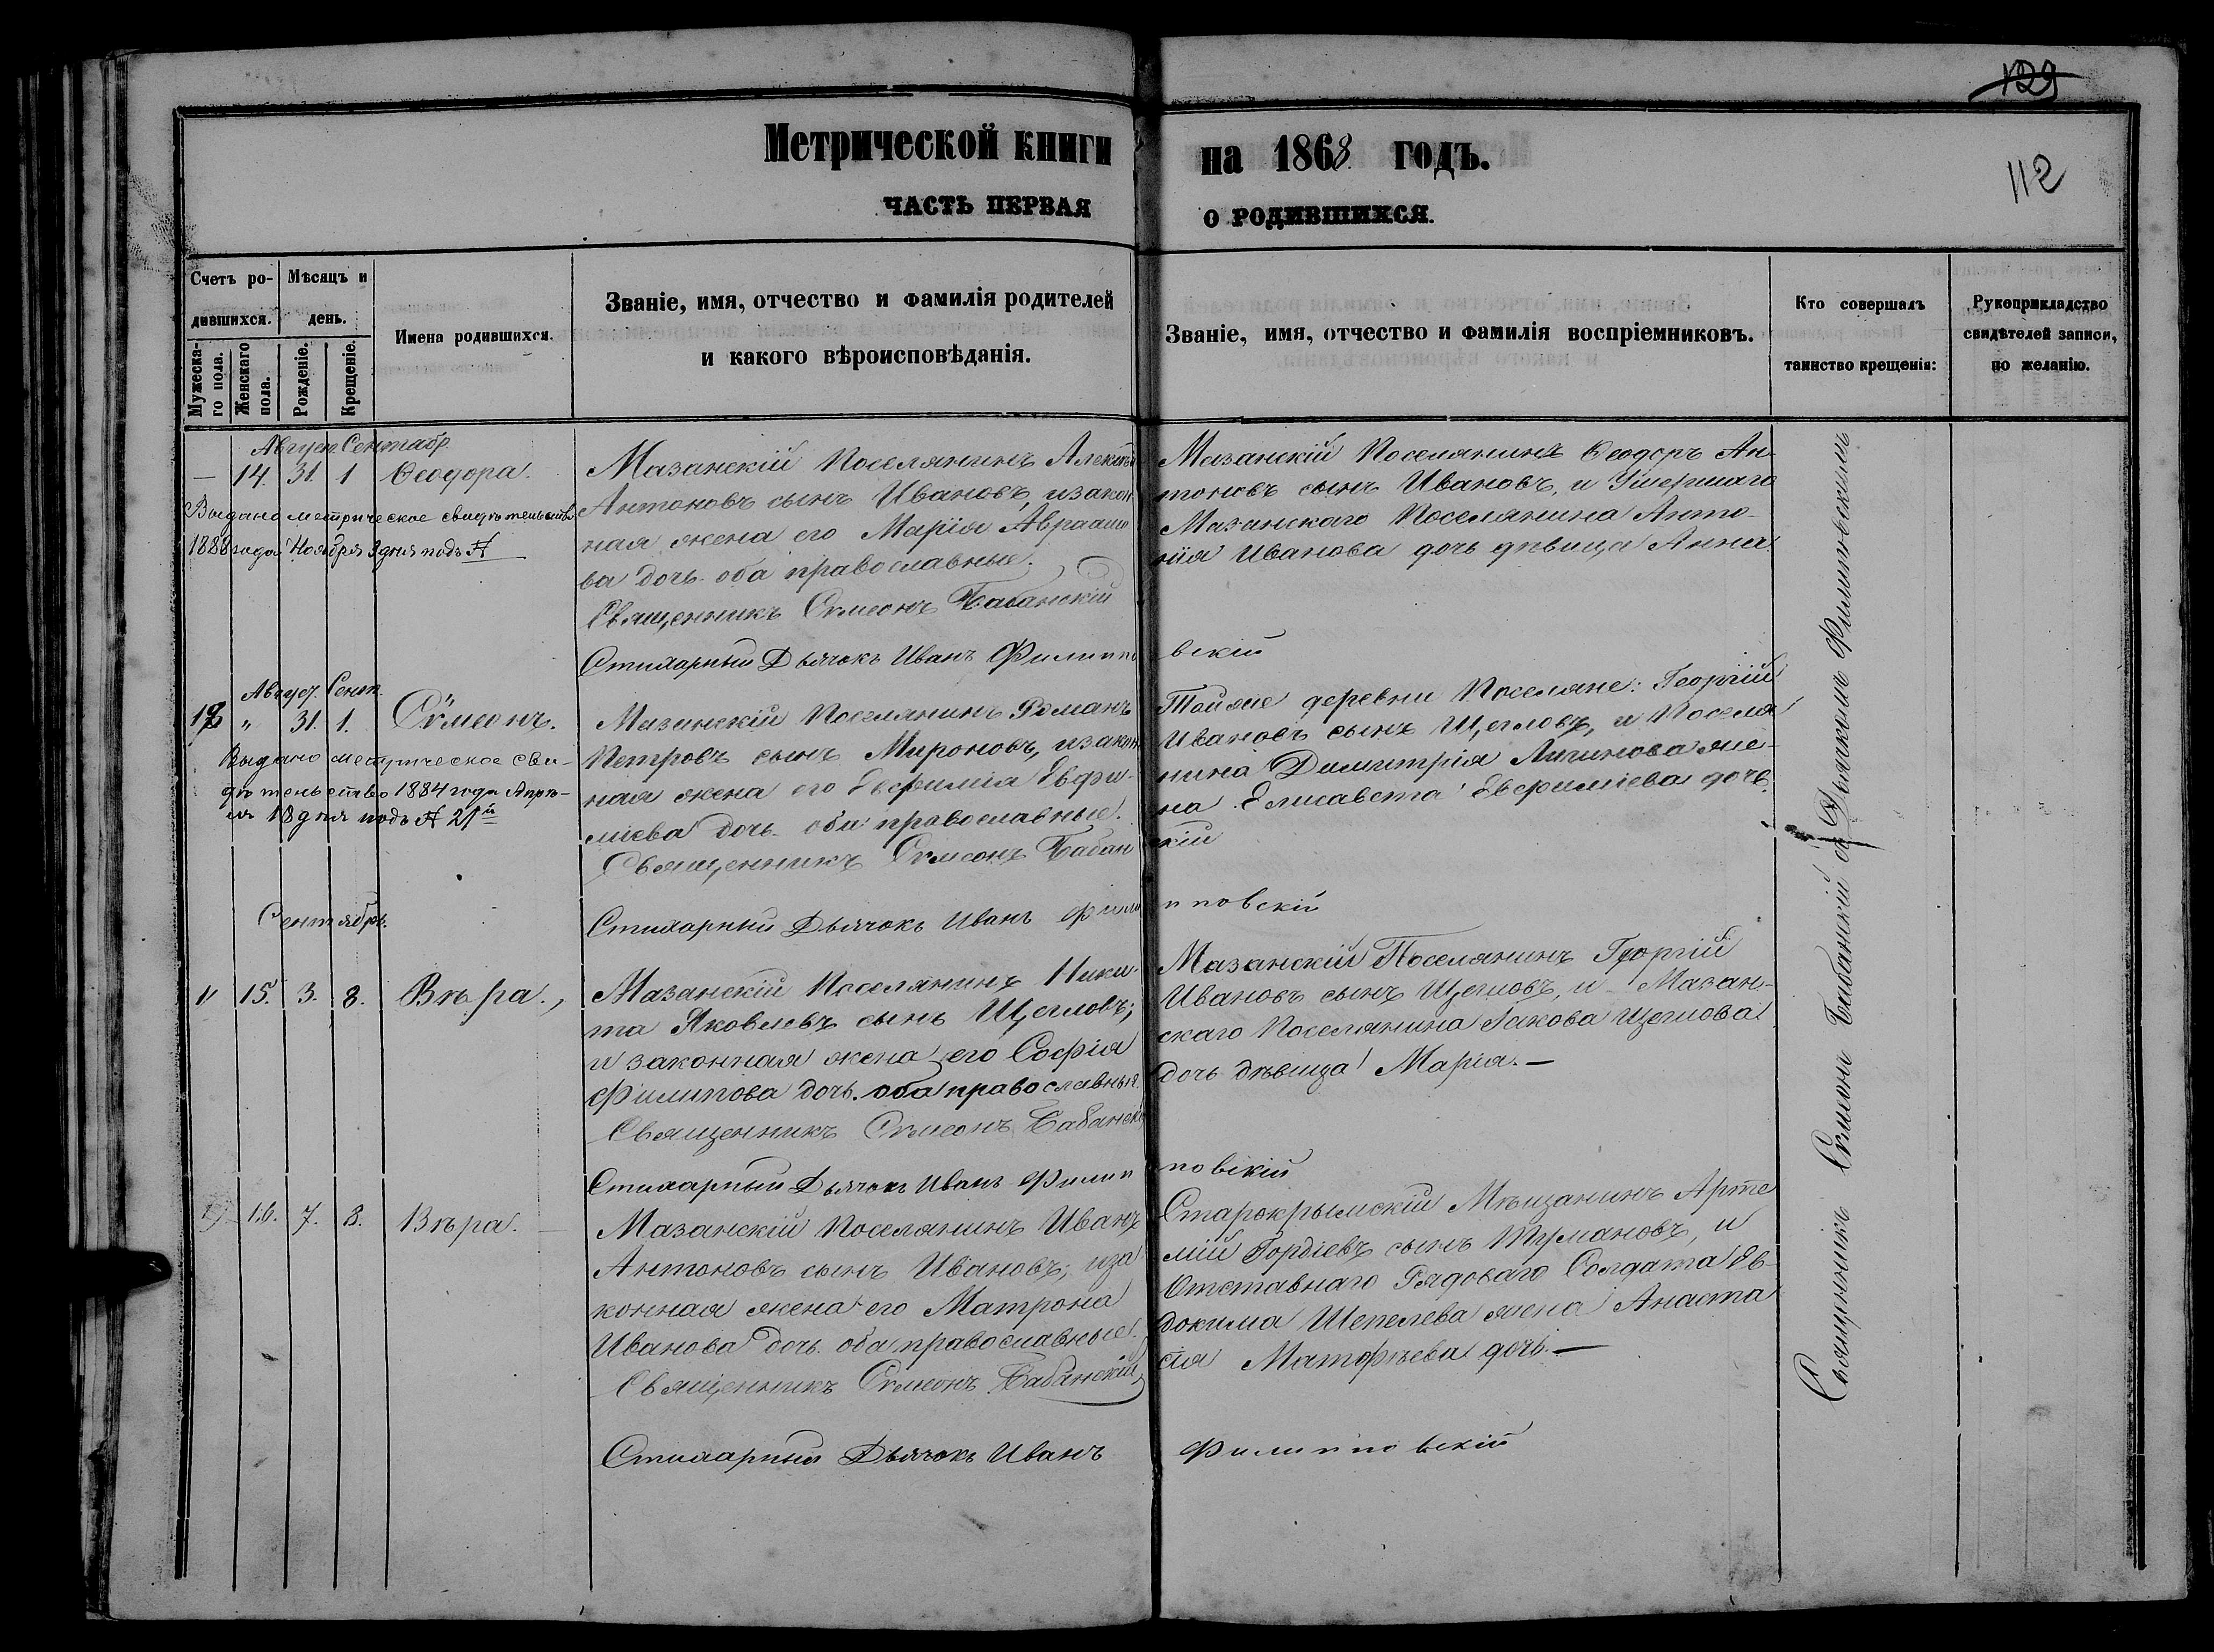 129
112
Метрической книги на 1868 годъ.
ЧАСТЬ ПЕРВАЯ О РОДИВШИХСЯ.
Счетъ ро-
дившихся.
Мужеска-
го пола.
Женскаго
пола.
Мѣсяцъ и
день.
Рожденіе.
Крещеніе.
Имена родившихся.
Званіе, имя, отчество и фамилія родителей
и какого вѣроисповѣданія.
Званіе, имя, отчество и фамилія воспріемниковъ.
Кто совершалъ
таинство крещенія:
Рукоприкладство
свидѣтелей записи,
по желанію.
Август Сентябр
— 14. 31. 1 Ѳеодора.
Выдано метрическое свидѣтельство
1888 года Ноября 9 дня подъ №
Мазанскій Поселянинъ Алексѣй
Антоновъ сынъ Ивановъ, изакон
ная жена его Марія Авраамо
ва дочь. оба православные.
Священникъ Сѵмеонъ Бабанскій
Стихарный Дьячокъ Иванъ Филиппо вскій
Мазанскій Поселянинъ Ѳеодоръ Ан-
тоновъ сынъ Ивановъ, и Умершаго
Мазанскаго Поселянина Анто-
нія Иванова дочь дѣвица Анна.
Август. Сент.
18 " 31. 1. Сѵмеонъ.
Выдано метрическое сви-
дѣтельство 1884 года Апрѣ-
ля 18 дня подъ № 21й
Мазанскій Поселянинъ Романъ
Петровъ сынъ Мироновъ, изакон
ная жена его Евфимія Евфи-
міева дочь. оба православные.
Священникъ Сѵмеонъ Бабан кій
Стихарный Дьячокъ Иванъ Фили пповскій
Тойже деревни Поселяне: Георгій
Ивановъ сынъ Щегловъ, и Поселя
нина Димитрія Логинова же-
на Елисавета Евфиміева дочь.
Сентябрь.
" 15. 3. 8. Вѣра.
Мазанскій Поселянинъ Ники-
та Яковлевъ сынъ Щегловъ;
и законная жена его Софія
Филипова дочь. оба православныя.
Священникъ Сѵмеонъ Бабанскі
Стихарный Дьячокъ Иванъ Филип повскій
Мазанскій Поселянинъ Георгій
Ивановъ сынъ Щегловъ, и Мазан-
скаго Поселянина Іакова Щеглова
дочь дѣвица Марія. —
16. 7. 8. Вѣра.
Мазанскій Поселянинъ Иванъ
Антоновъ сынъ Ивановъ; иза
конная жена его Матрона
Иванова дочь. оба православные.
Священникъ Сѵмеонъ Бабанскій
Стихарный Дьячокъ Иванъ Филипповскій
Старокрымскій Мѣщанинъ Арте
мій Гордіевъ сынъ Тумановъ, и
Отставнаго Рядоваго Солдата Ев-
докима Шепелева жена Анаста
сія Матфѣева дочь. —
Священникъ Сѵмеонъ Бабанскій съ Дьячкомъ Филипповскимъ